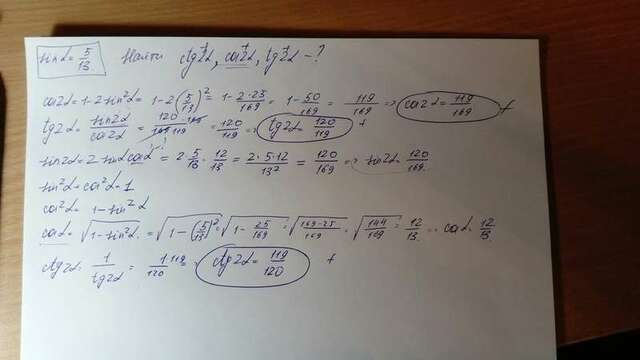 sinα = 5/13. Найти ctg2α, cos2α, tg2α - ?
cos2α = 1-2·sin²α = 1-2(5/13)² = 1- 2·25/169 = 1- 50/169 = 119/169 => cos2α = 119/169 +
tg2α = sin2α/cos2α = 120·169/169·119 = 120/119 => tg2α = 120/119 +
sin2α = 2·sinα cosα = 2·5/13·12/13 = 2·5·12/13² = 120/169 => sin2α = 120/169.
sin²α + cos²α = 1
cos²α = 1-sin²α
cosα = √1-sin²α = √1-(5/13)² = √1- 25/169 = √169-25/169 = √144/169 = 12/13. => cosα = 12/13.
ctg2α = 1/tg2α = 1·119/120 => ctg2α = 119/120 +